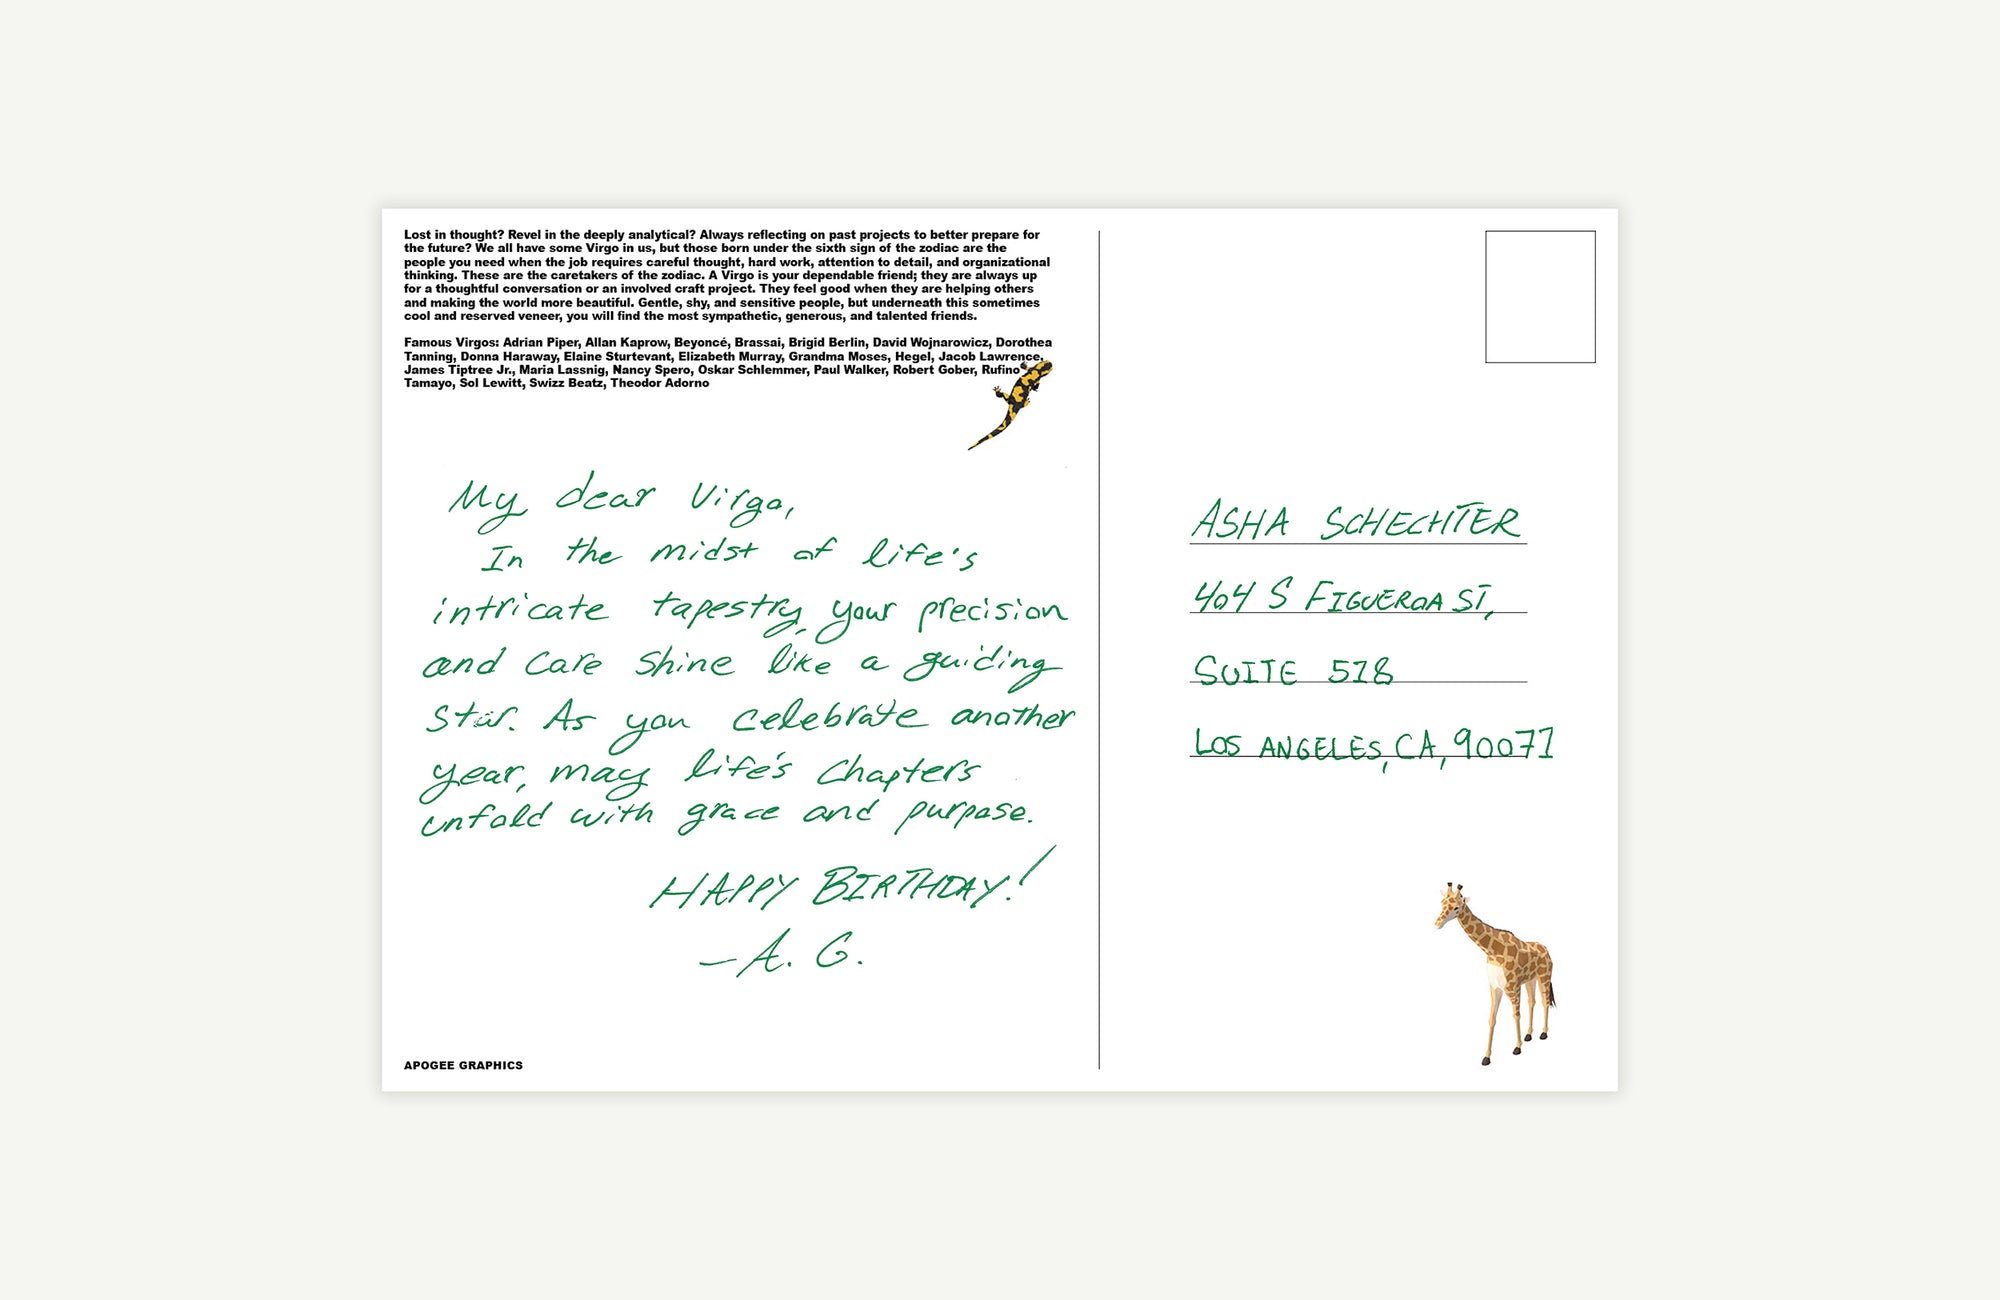 Lost in thought? Revel in the deeply analytical? Always reflecting on past projects to better prepare for
the future? We all have some Virgo in us, but those born under the sixth sign of the zodiac are the
people you need when the job requires careful thought, hard work, attention to detail, and organizational
thinking. These are the caretakers of the zodiac. A Virgo is your dependable friend; they are always up
for a thoughtful conversation or an involved craft project. They feel good when they are helping others
and making the world more beautiful. Gentle, shy, and sensitive people, but underneath this sometimes
cool and reserved veneer, you will find the most sympathetic, generous, and talented friends.
Famous Virgos: Adrian Piper, Allan Kaprow, Beyoncé, Brassai, Brigid Berlin, David Wojnarowicz, Dorothea
Tanning, Donna Haraway, Elaine Sturtevant, Elizabeth Murray, Grandma Moses, Hegel, Jacob Lawrence,
James Tiptree Jr., Maria Lassnig, Nancy Spero, Oskar Schlemmer, Paul Walker, Robert Gober, Rufino
Tamayo, Sol Lewitt, Swizz Beatz, Theodor Adorno
My dear Virgo,
In the midst of life's
intricate tapestry, your precision
and care shine like a guiding
star. As you celebrate another
year, may life's chapters
unfold with grace and purpose.
HAPPY BIRTHDAY!
—A. G.
APOGEE GRAPHICS
ASHA SCHECHTER
404 S FIGUEROA ST,
SUITE 518
LOS ANGELES, CA, 90071